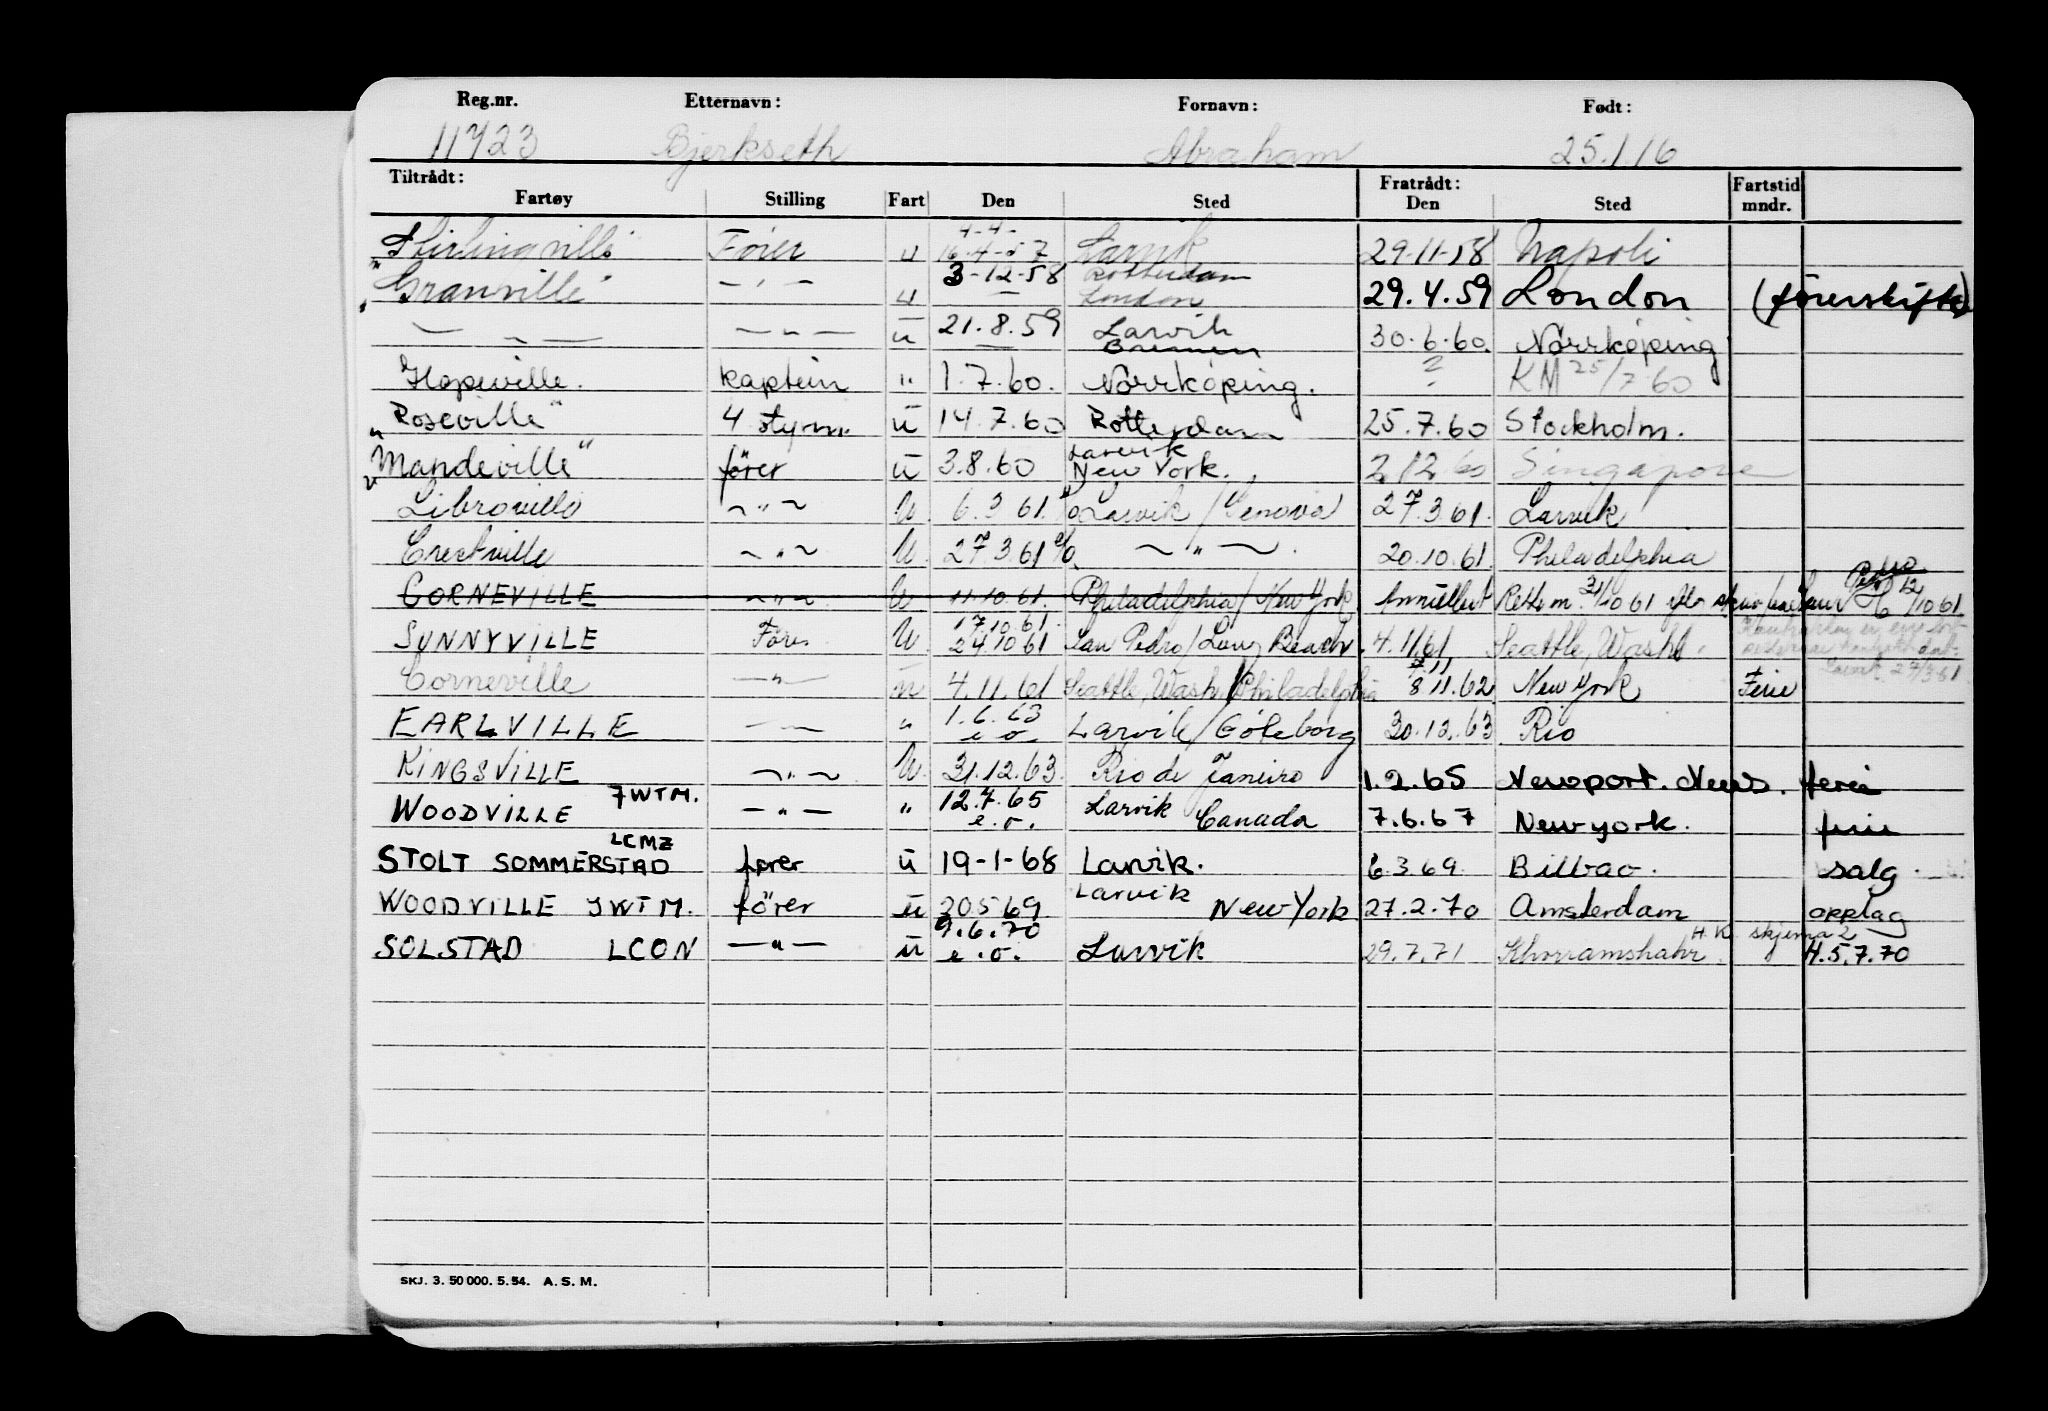 Reg.nr. Etternavn: Fornavn: Født:
11723 Bjerkseth Abraham 25.1.16
Tiltrådt: Fratrådt: Fartstid
Fartøy Stilling Fart Den Sted Den Sted mndr.
4-4-
"Stirlingville" Fører u 16.4-57 Larvik 29-11-58 Napoli
3-12-58 Rotterdam
"Granville" — " — u — London 29.4.59 London (førerskifte)
— " — — " — u 21.8.59 Larvik Bremen 30.6.60. Norrköping
Hopeville. kaptein " 1.7.60. Norrköping. ? KM 25/7 60
"Roseville" 4 styrm. u 14.7.60 Rotterdam 25.7.60 Stockholm.
Larvik
"Mandeville" fører u 3.8.60 New York. 2/12 60 Singapore
Libreville ~ " ~ U. 6.3 61. % Larvik / Genova 27.3.61. Larvik
Crestville ~ " ~ U. 27.3.61 % ~ " ~. 20.10.61. Philadelphia
CORNEVILLE ~ " ~ U 11.10.61. Philadelphia / New York Annullert Rettm. 31/10 61 12/10 61
17.10.61.
SUNNYVILLE Fører U 24.10 61 San Pedro / Long Beach. 4.11.61 Seattle, Wash.
7.11
Corneville — " — u 4.11.61 Seattle, Wash. / Philadelphia 8 11.62 New York Ferie
EARLVILLE — " — " 1.6.63 e.o. Larvik / Göteborg 30.12.63 Rio
KINGSVILLE ~ " ~ U. 31.12.63. Rio de Janeiro 1.2.65 Newport. News. ferie
WOODVILLE JWTM. — " — " 12.7.65 e.o. Larvik Canada 7.6.67 New york. ferie
LCMZ
STOLT SOMMERSTAD fører u 19-1-68 Larvik. 6.3.69. Bilbao. salg
WOODVILLE JWTM. fører u 20.5.69. Larvik New York 27.2.70 Amsterdam opplag
9.6.70 H.K. skjema 2
SOLSTAD LCON — " — u e.o. Larvik 29.7.71 Khorramshahr. H.5.7.70
SKJ. 3. 50 000. 5. 54. A. S. M.